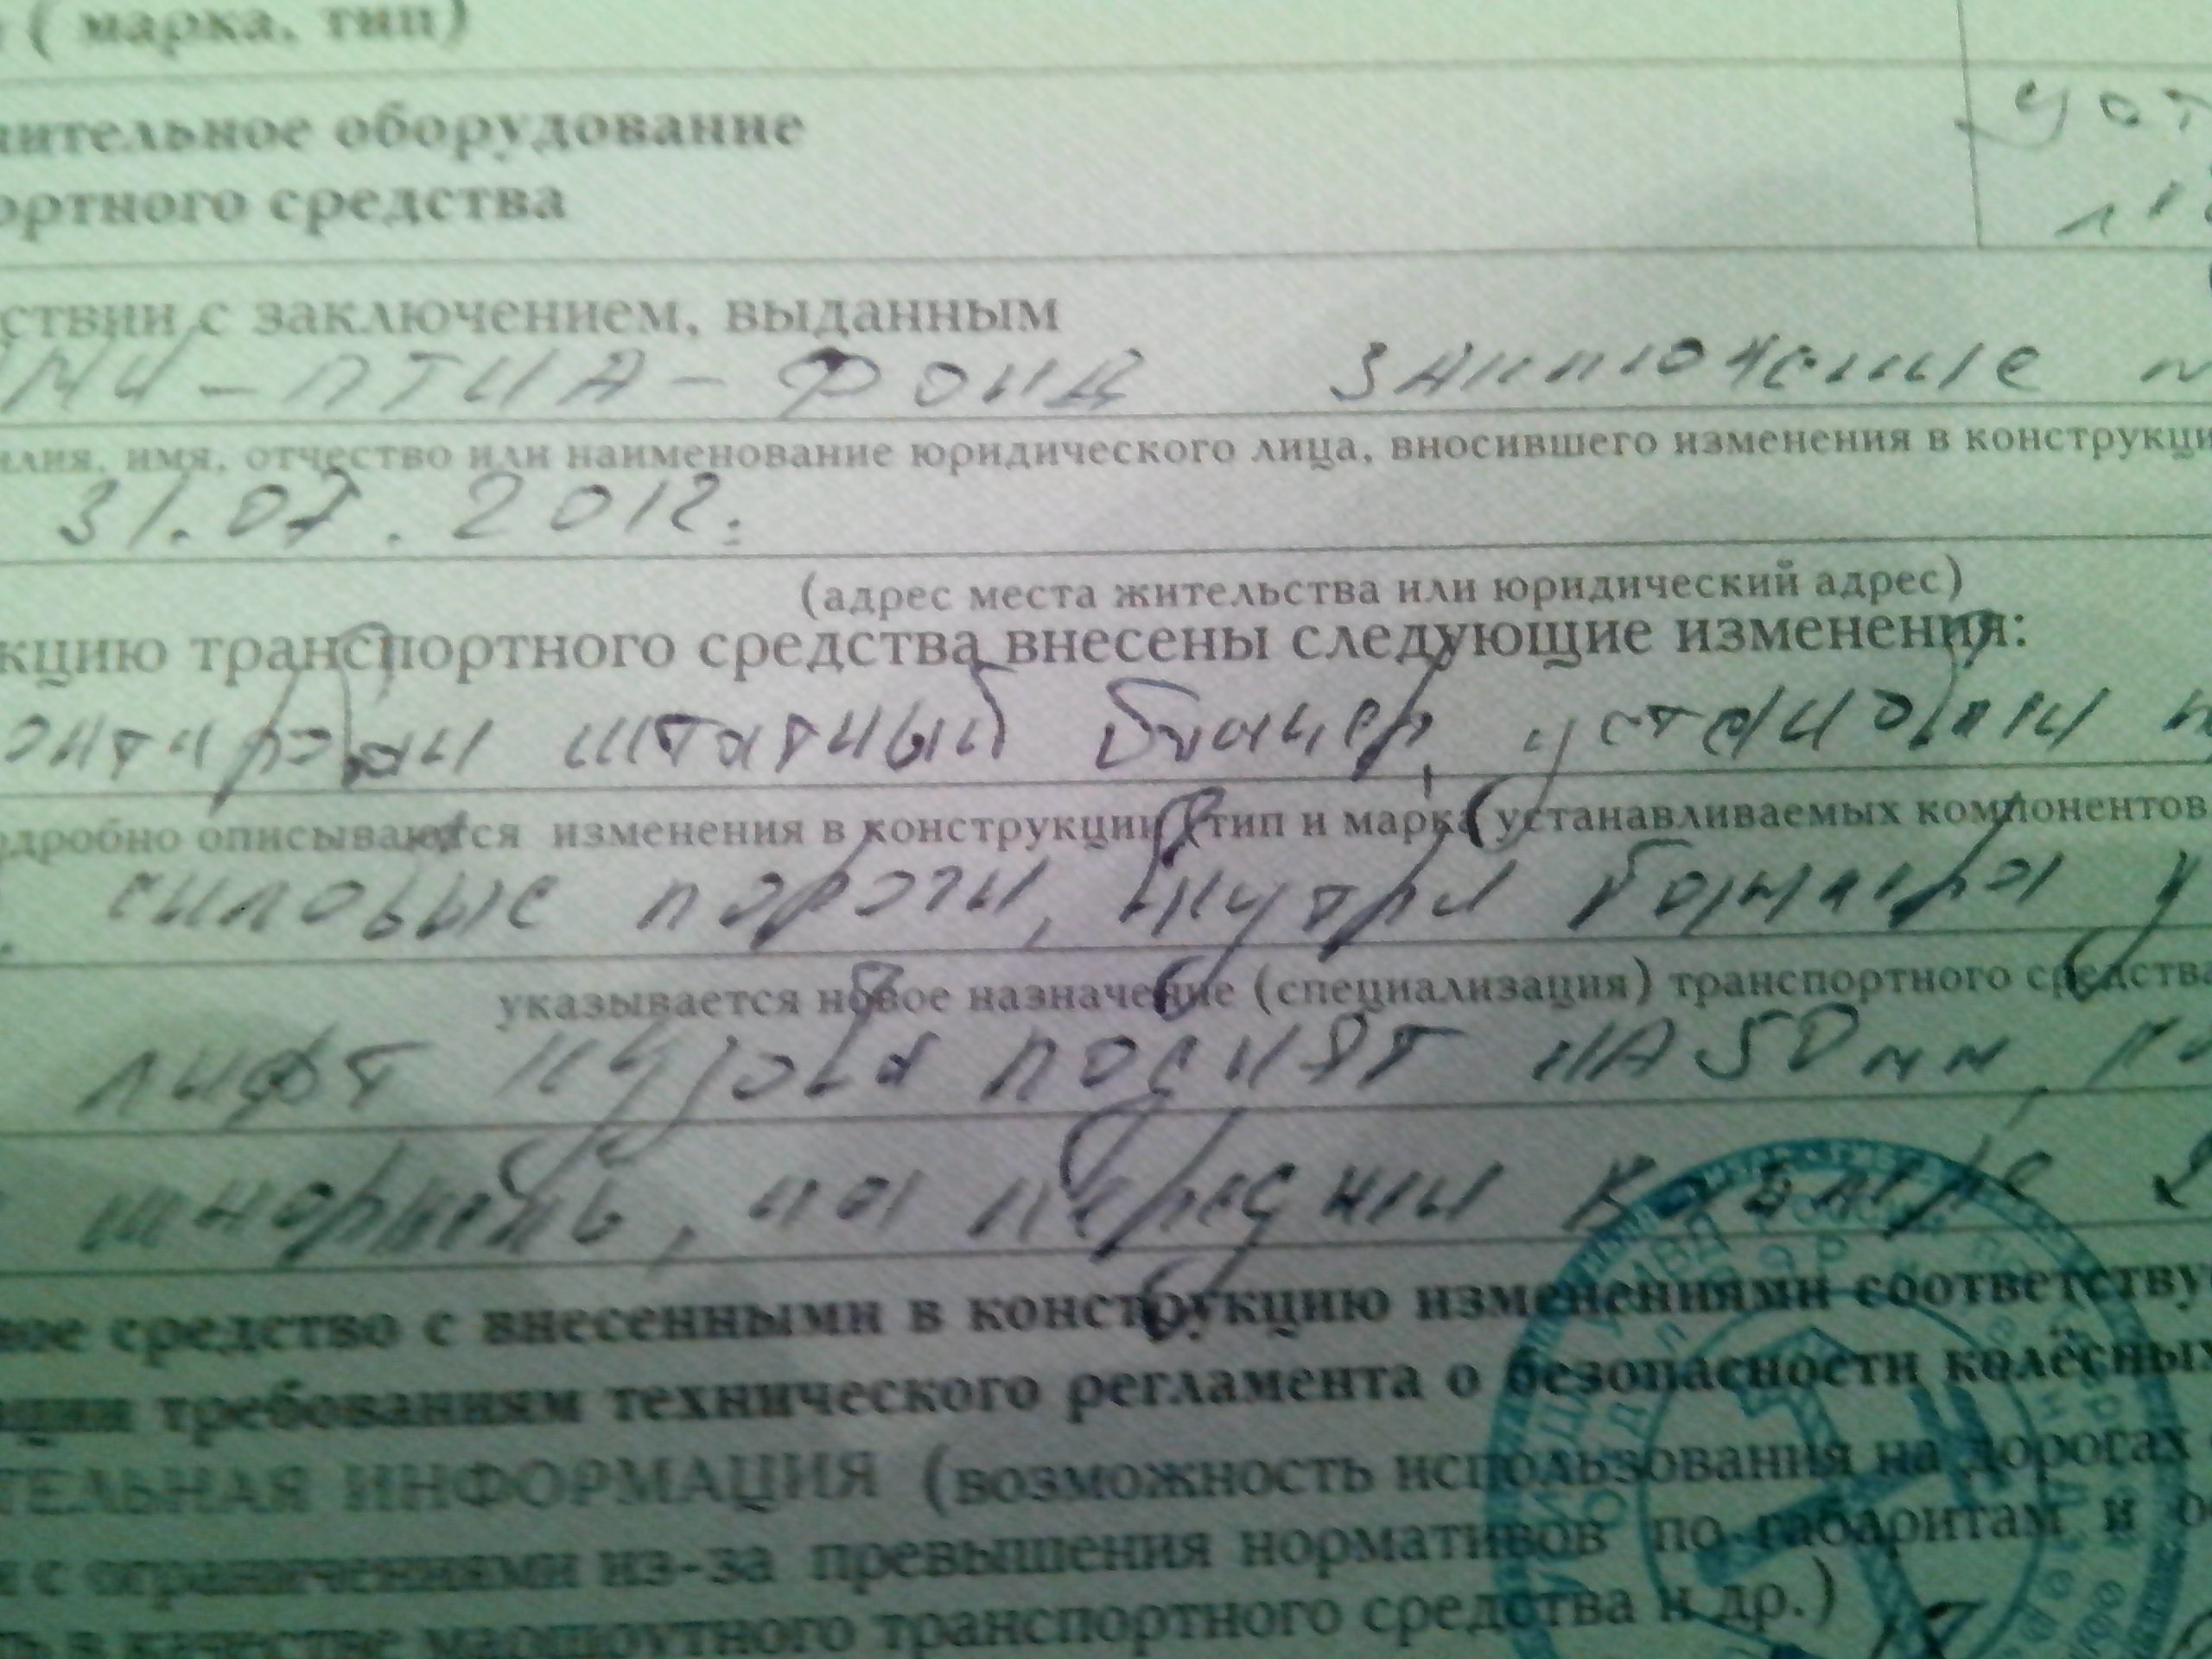 ( марка, тип)
нительное оборудование
ортного средства
ствии с заключением, выданным
МИ-ПТИА-ФОНД заключение
илия, имя, отчество или наименование юридического лица, вносившего изменения в конструкци
31.07.2012.
(адрес места жительства или юридический адрес)
кцию транспортного средства внесены следующие изменения:
онтирован штатный бампер, установлен
одробно описываются изменения в конструкции (тип и марка устанавливаемых компонентов
силовые пороги, внутри бампера
указывается новое назначение (специализация) транспортного средства
лифт кузова поднят на 50 мм,
шноркель, на передни
ное средство с внесенными в конструкцию изменениями соответству
ции требованиям технического регламента о безопасности колёсных
ТЕЛЬНАЯ ИНФОРМАЦИЯ (возможность использования на дорогах
с ограничениями из-за превышения нормативов по габаритам и
ть в качестве маршрутного транспортного средства и др.)